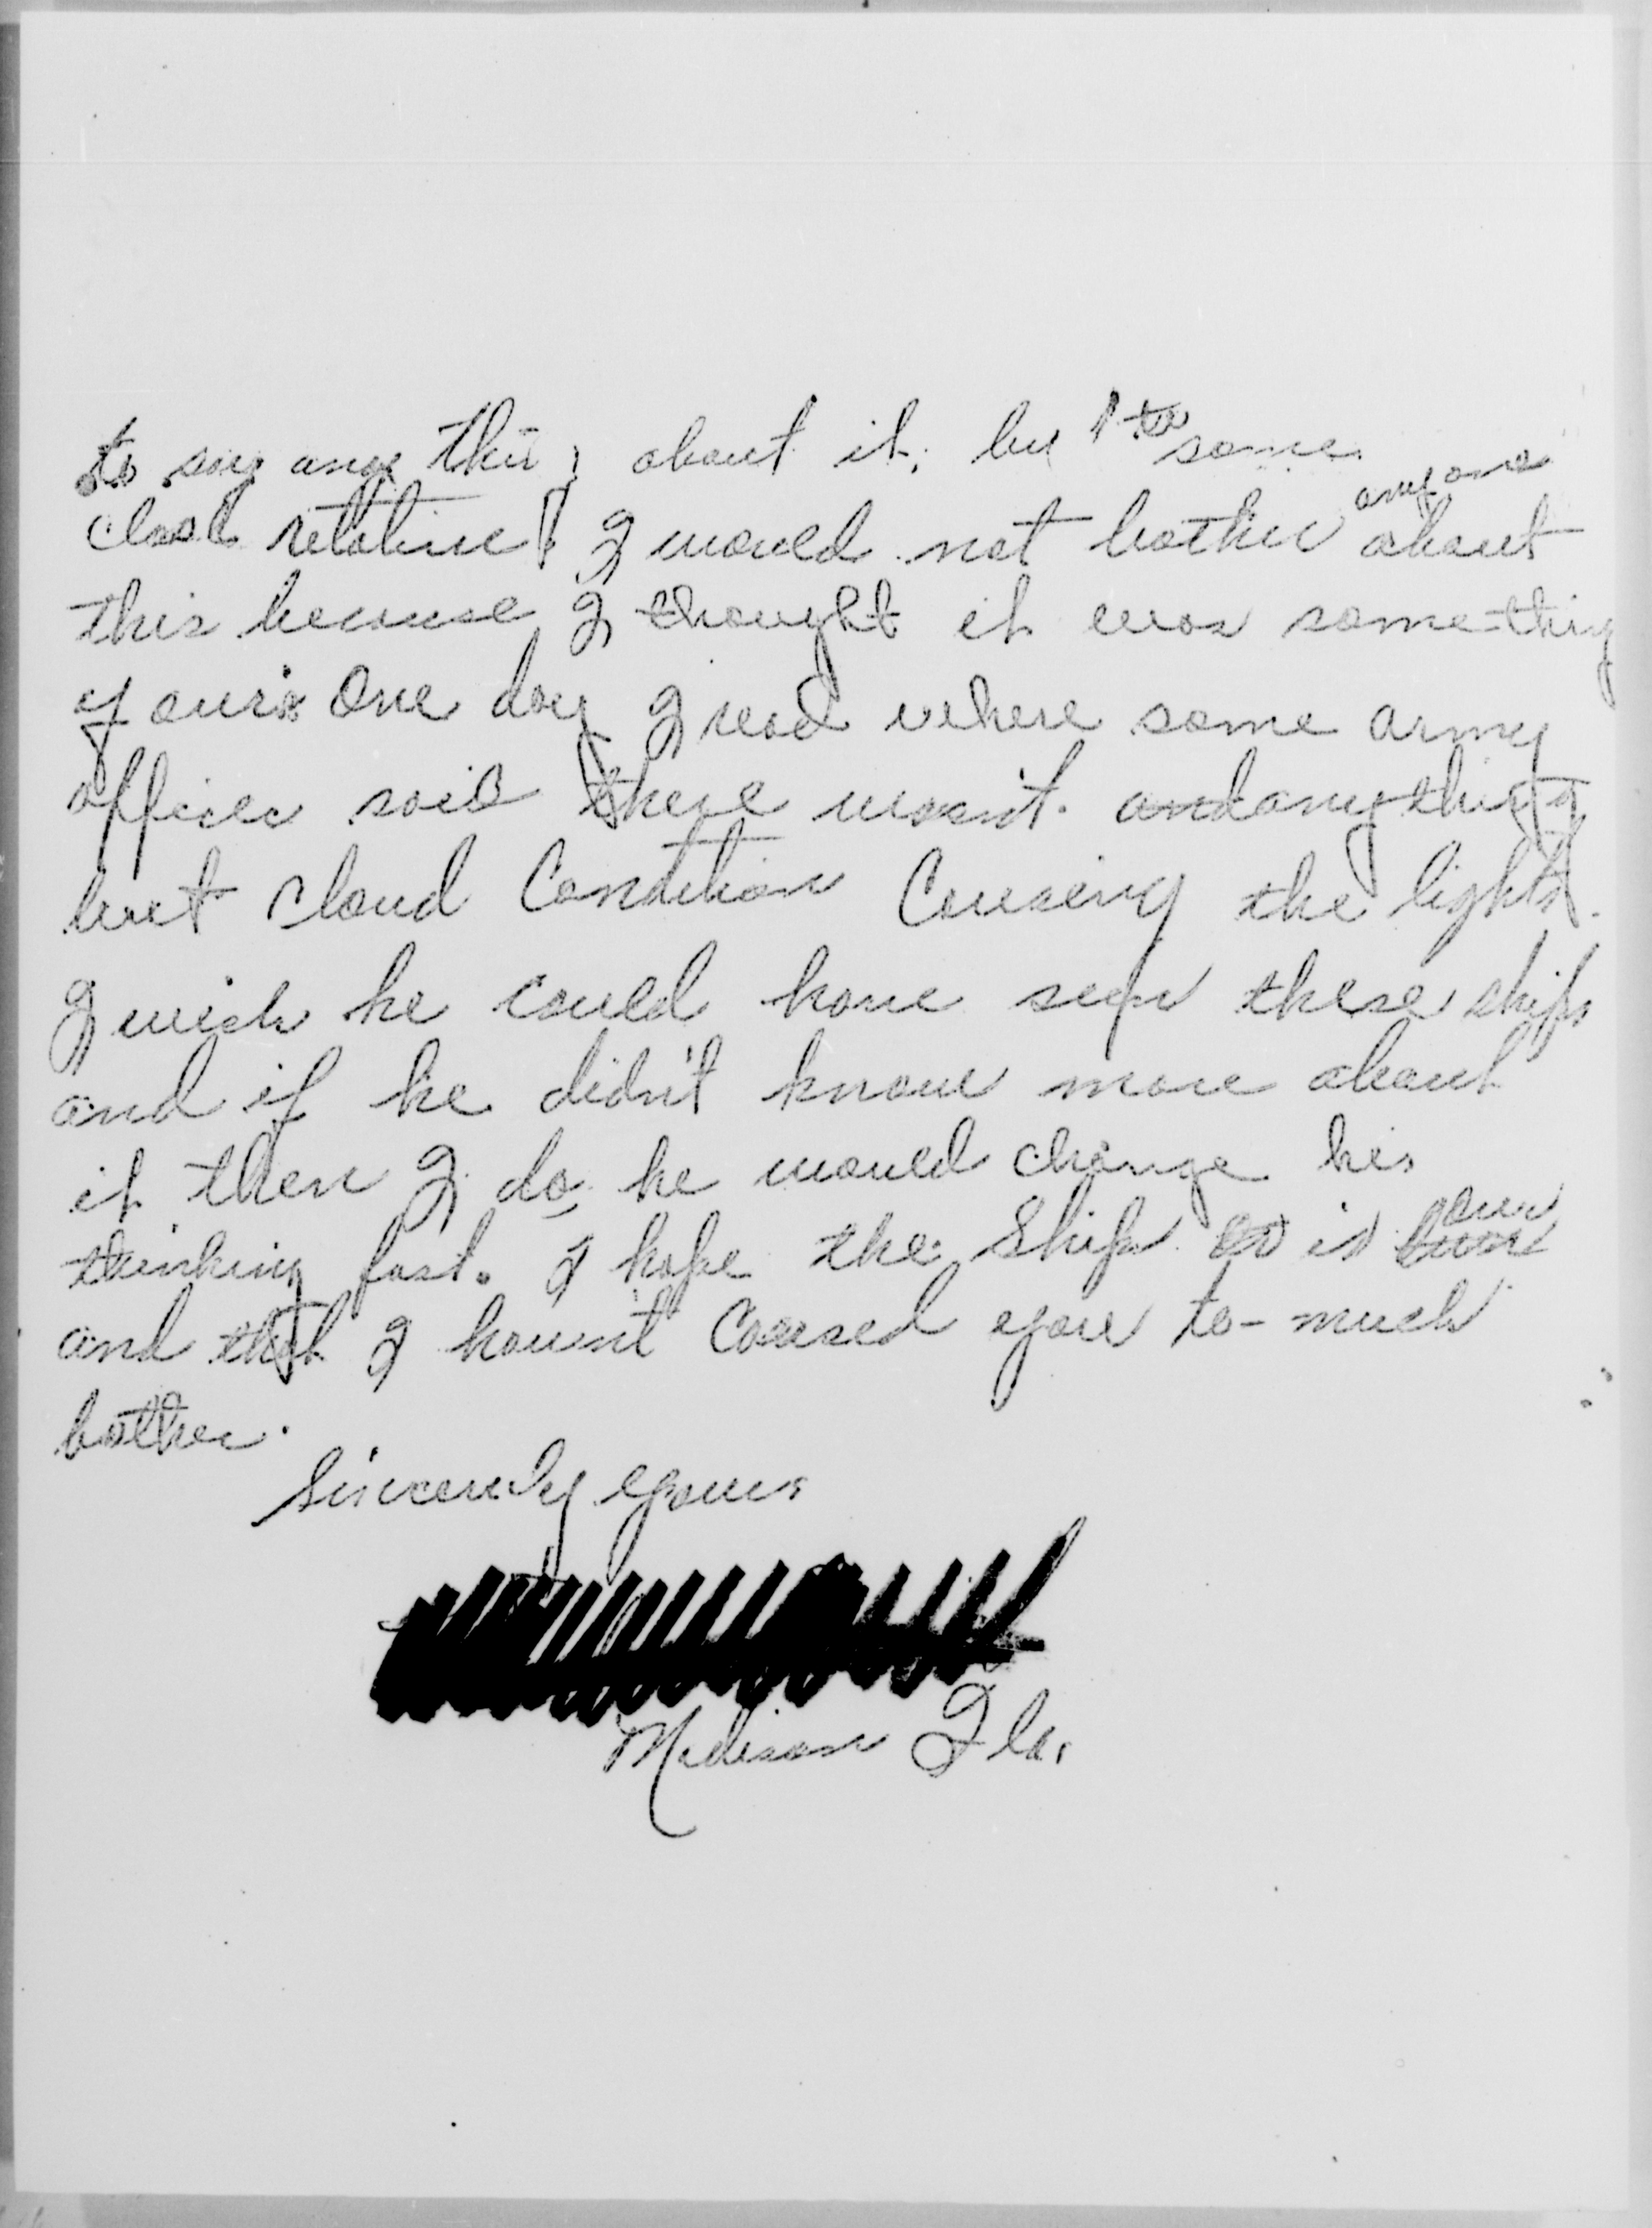 to say any thing about it, but to some
close relative I would not bother anyone about
this because I thought it was something
of ours. One day I read where some army
officer said there wasn't anything
but cloud Condition Causing the lights.
I wish he could have seen these ships
and if he didn't know more about
it then I do, he would change his
thinking fast. I hope the Ship is our
and that I havent Caused you to-much
bother.
Sincerely yours
Madison Fla.